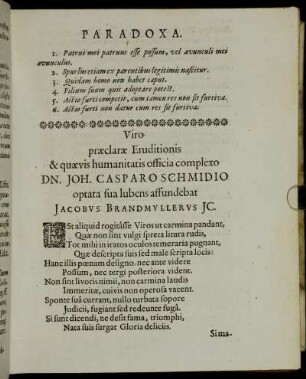 PARADOXA.
1. Patrui mei patruus esse possum, vel avunculi mei
avunculus.
2. Spurius etiam ex parentibus legitimis nascitur.
3. Quidam homo non habet caput.
4. Filium suum quis adoptare potest.
5. Actio furti competit, cum tamen res non sit furtiva.
6. Actio furti non datur cum res sit furtiva.
Viro
præclaræ Eruditionis
& quævis humanitatis officia complexo
DN. JOH. CASPARO SCHMIDIO
optata sua lubens affundebat
JACOBVS BRANDMYLLERVS JC.
Est aliquid rogitâsse Viros ut carmina pandant,
Quæ non sint vulgi spreta litura rudis,
Tot mihi in iratos oculos temeraria pugnant,
Quæ descripta suis sed male scripta locis:
Hanc illis pœnam designo. nec ante videre
Possum, nec tergi posteriora vident.
Non sint livoris nimii, non carmina laudis
Immeritæ, cuivis non operosa vacent.
Sponte suâ currant, nullo turbata sopore
Judicii, fugiant sed redeunte fugâ.
Si sunt dicendi, ne desit fama, triumphi,
Nata suis surgat Gloria deliciis.
Sima-